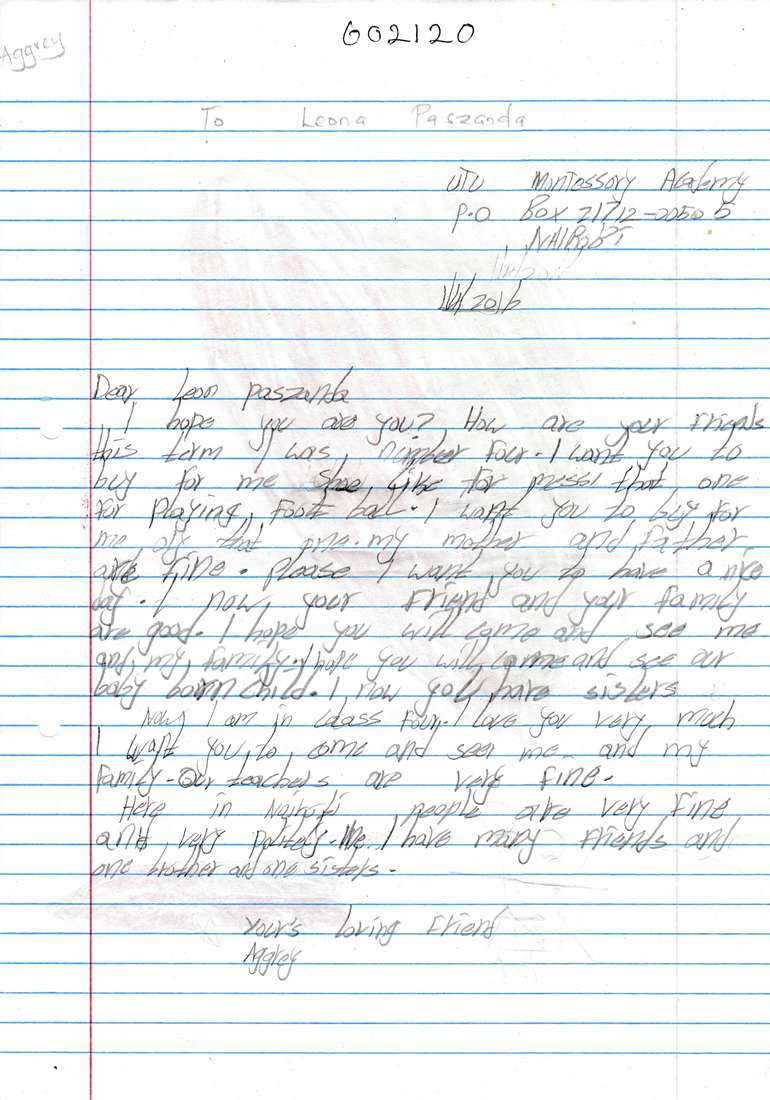 602120
Aggrey
To Leona Paszanda
UTU Montessory Academy
P.O Box 21712-00505
NAIRobI
Dear Leon paszanda
I hope you are you? How are your Friends
this term I was, number four. I want you to
buy for me Shoe like for messi that one
for playing, Foot ball. I want you to buy for
me that one. my mother and father
are fine. please I want you to have a nice
day. I now, your friend and your family
are good. I hope you will come and see me
and my family. I hope you will come and see our
baby born child. I now you have sisters
Now I am in class four. I love you very much
I want you to come and see me and my
family. Our teachers are very fine.
Here in Nairobi people are very fine
and very politely. I have many friends and
one brother and one sisters.
Your's loving Friend
Aggrey